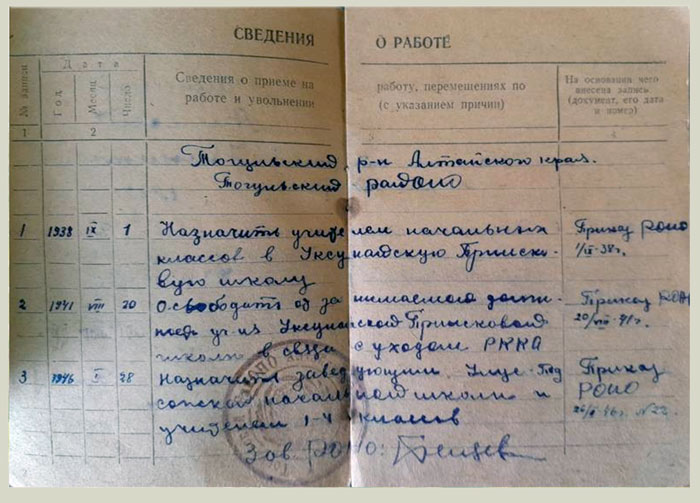 СВЕДЕНИЯ О РАБОТЕ
№ записи
Дата
Год
Месяц
Число
Сведения о приеме на работу, перемещениях по
работе и увольнении (с указанием причин)
На основании чего
внесена запись
(документ, его дата
и номер)
1 2 3 4
Тогульский р-н Алтайского края.
Тогульский районо
1 1938 IX 1 Назначить учителем начальных Приказ РОНО
классов в Уксунайскую Прииско- 1/IX-38г.
вую школу
2 1941 VIII 20 Освободить от занимаемого долж- Приказ РОНО
ность уч-ля Уксунайской Приисковой 20/VIII-41г.
школы в связи с уходом РККА
3 1946 28 Назначить заведующим Приказ
начальной школы и РОНО
учителем 1-4 классов 46г.
Зав РОНО: